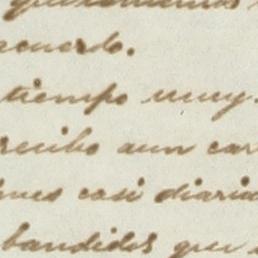 queremos
acuerdo.
tiempo muy
recibo aun car
nes casi diaria
bandidos que